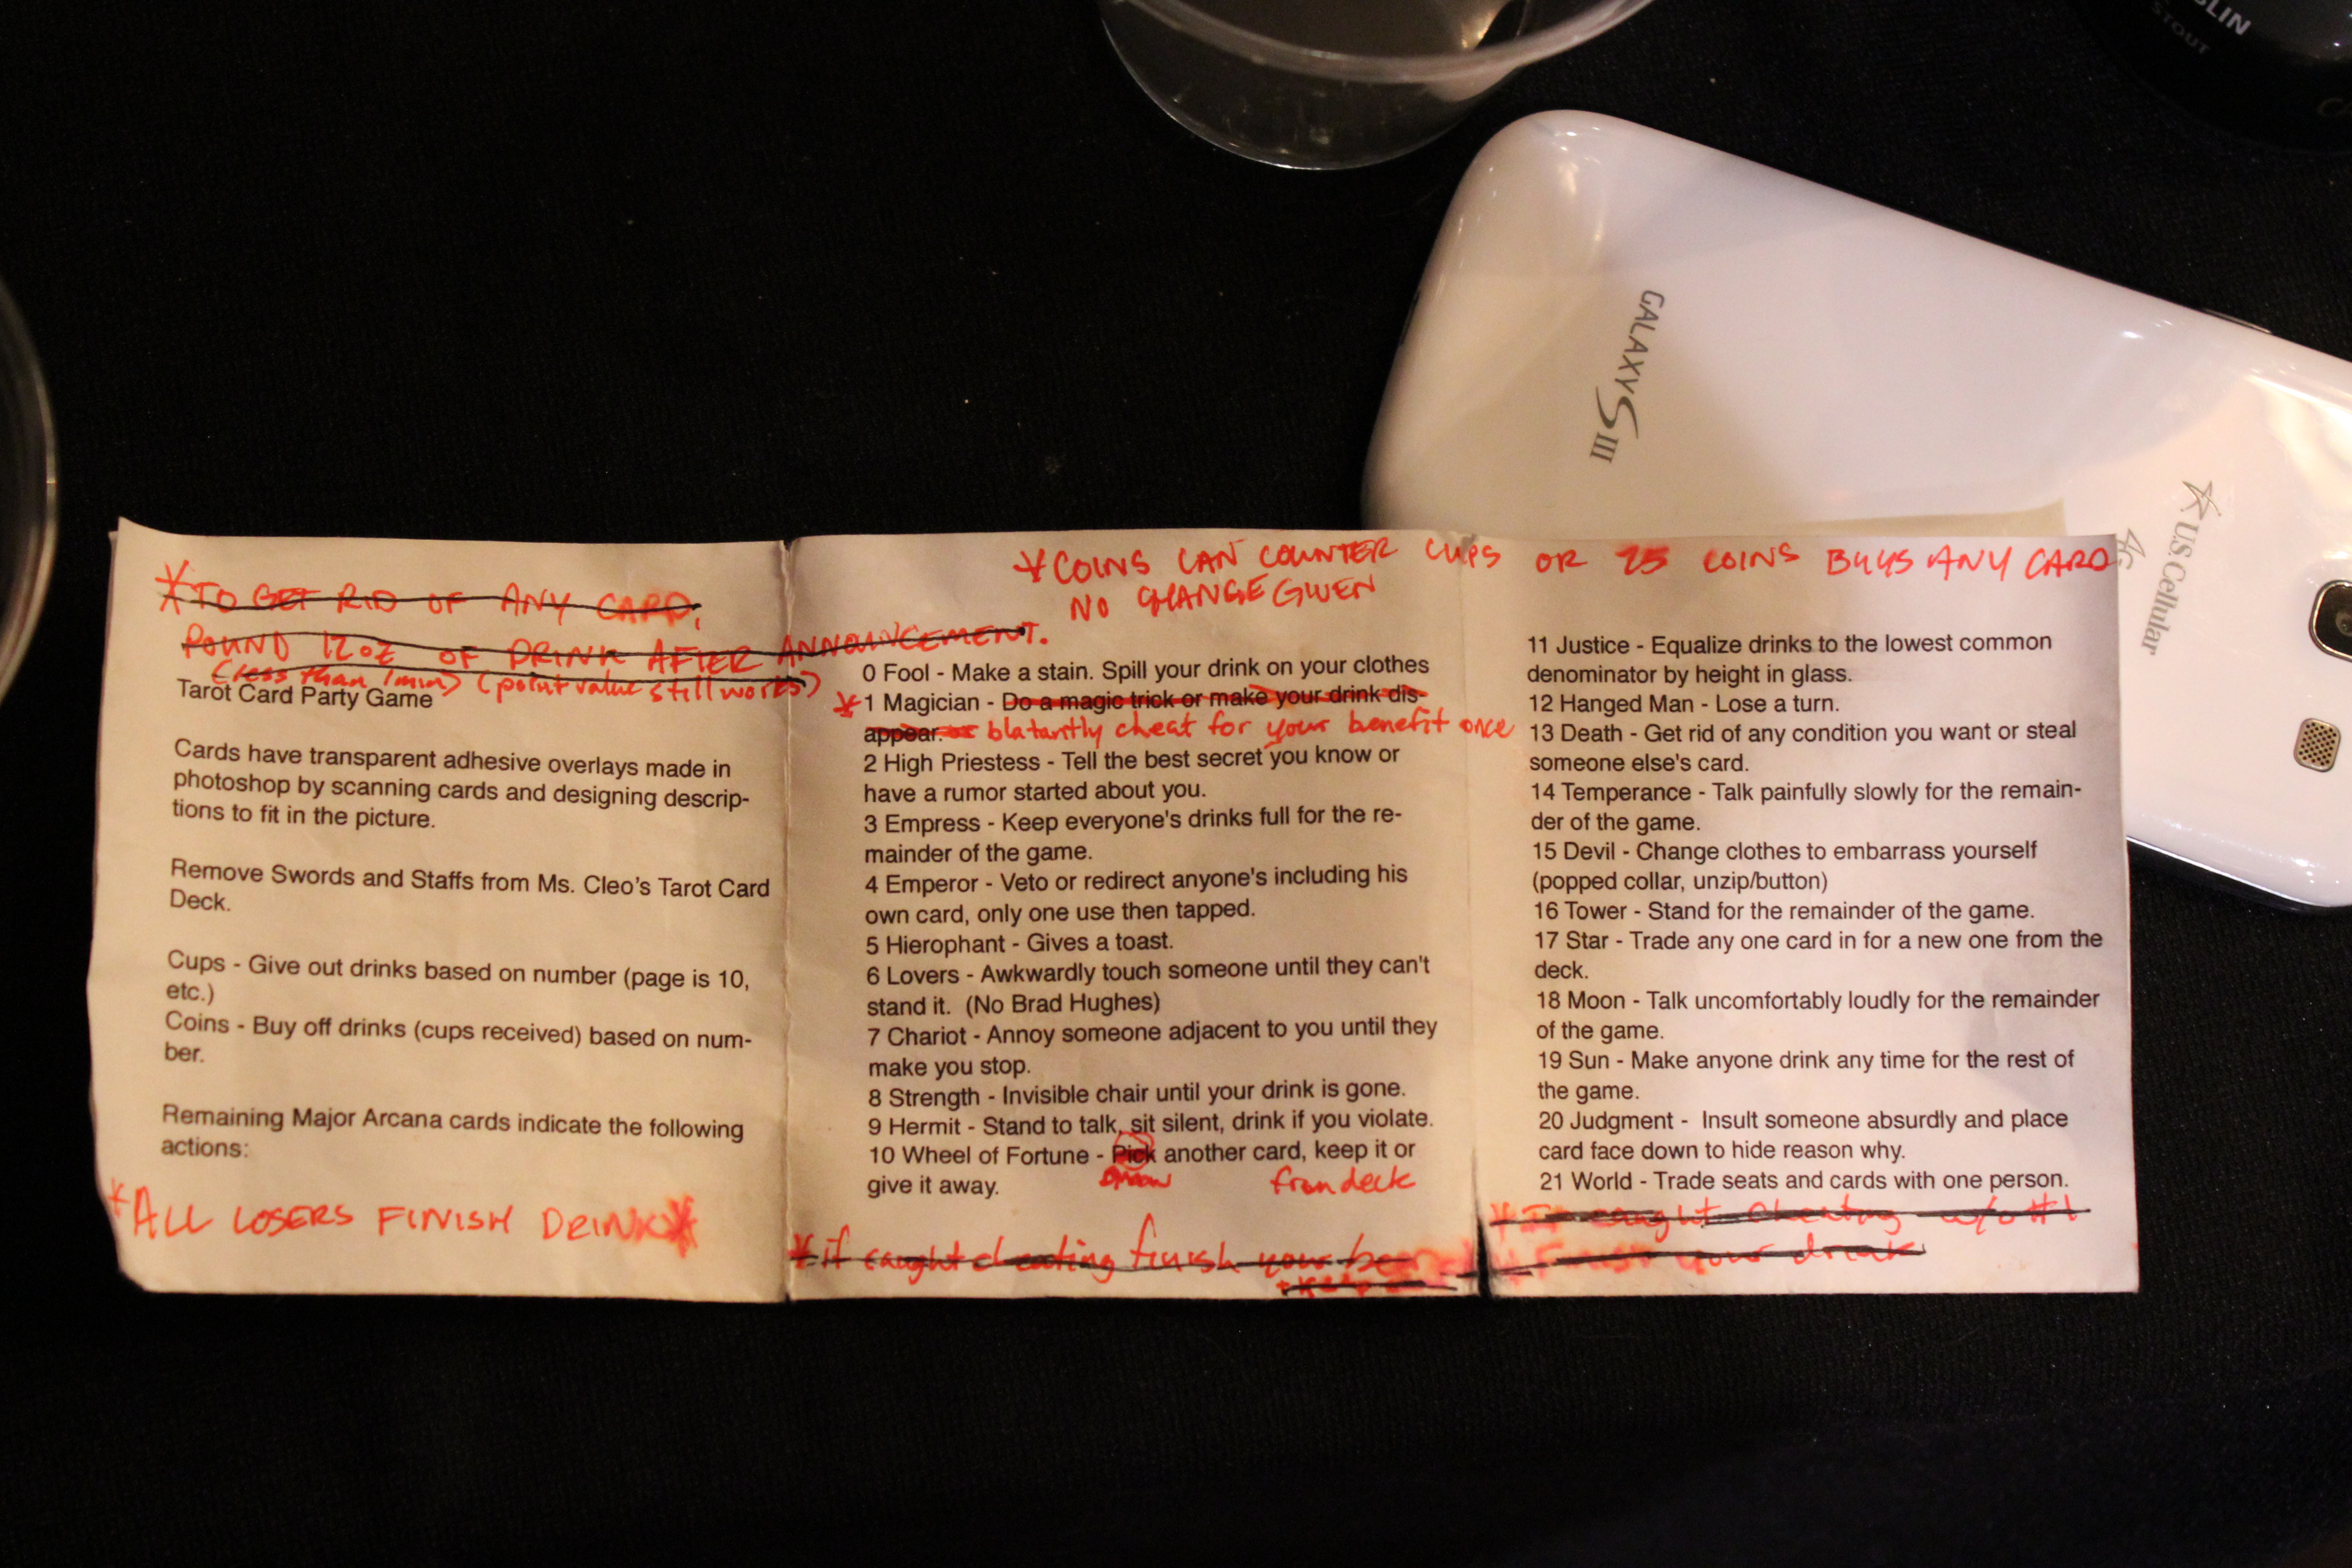 *TO GET RID OF ANY CARD,
POUND 12oz OF DRINK AFTER ANNOUNCEMENT.
(less than 1min) (point value still works)
Tarot Card Party Game
Cards have transparent adhesive overlays made in
photoshop by scanning cards and designing descrip-
tions to fit in the picture.
Remove Swords and Staffs from Ms. Cleo's Tarot Card
Deck.
Cups - Give out drinks based on number (page is 10,
etc.)
Coins - Buy off drinks (cups received) based on num-
ber.
Remaining Major Arcana cards indicate the following
actions:
*ALL LOSERS FINISH DRINK*
*COINS CAN COUNTER CUPS OR 25 COINS BUYS ANY CARD
NO CHANGE GIVEN
0 Fool - Make a stain. Spill your drink on your clothes
*1 Magician - Do a magic trick or make your drink dis-
appear. or blatantly cheat for your benefit once
2 High Priestess - Tell the best secret you know or
have a rumor started about you.
3 Empress - Keep everyone's drinks full for the re-
mainder of the game.
4 Emperor - Veto or redirect anyone's including his
own card, only one use then tapped.
5 Hierophant - Gives a toast.
6 Lovers - Awkwardly touch someone until they can't
stand it. (No Brad Hughes)
7 Chariot - Annoy someone adjacent to you until they
make you stop.
8 Strength - Invisible chair until your drink is gone.
9 Hermit - Stand to talk, sit silent, drink if you violate.
10 Wheel of Fortune - Pick another card, keep it or
give it away. Draw from deck
*if caught cheating finish your beer
11 Justice - Equalize drinks to the lowest common
denominator by height in glass.
12 Hanged Man - Lose a turn.
13 Death - Get rid of any condition you want or steal
someone else's card.
14 Temperance - Talk painfully slowly for the remain-
der of the game.
15 Devil - Change clothes to embarrass yourself
(popped collar, unzip/button)
16 Tower - Stand for the remainder of the game.
17 Star - Trade any one card in for a new one from the
deck.
18 Moon - Talk uncomfortably loudly for the remainder
of the game.
19 Sun - Make anyone drink any time for the rest of
the game.
20 Judgment - Insult someone absurdly and place
card face down to hide reason why.
21 World - Trade seats and cards with one person.
*If caught cheating w/o #1
Finish your drink
GALAXY SIII
U.S. Cellular
4G
STOUT